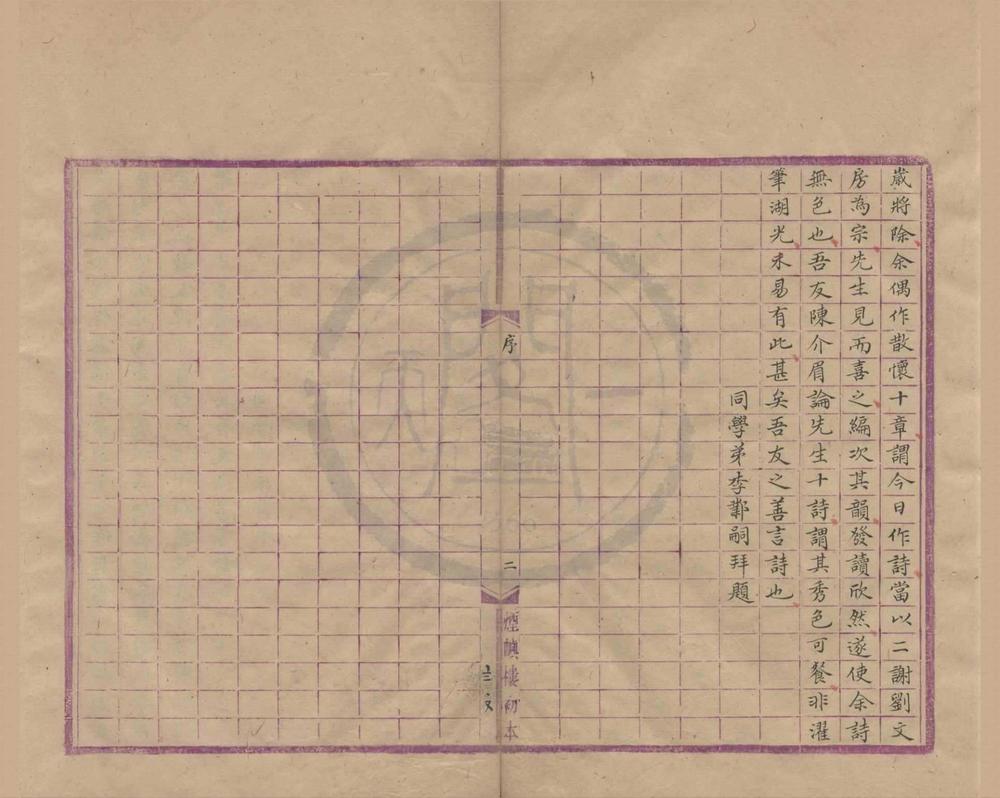 歲將除余偶作散懷十章謂今日作詩當以二謝劉文
房為宗先生見而喜之編次其韻發讀欣然遂使余詩
無色也吾友陳介眉論先生十詩謂其秀色可餐非濯
筆湖光未易有此甚矣吾友之善言詩也
同學弟李鄴嗣拜題
序
二
煙嶼樓初本